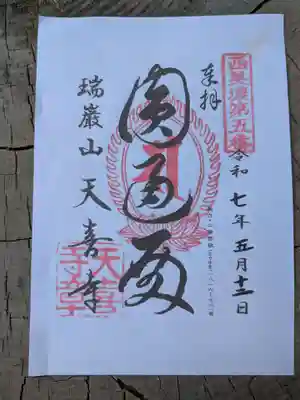 西美濃第五番
奉拝
令和七年五月十二日
圓通閣
瑞巌山 天喜寺
天喜寺章